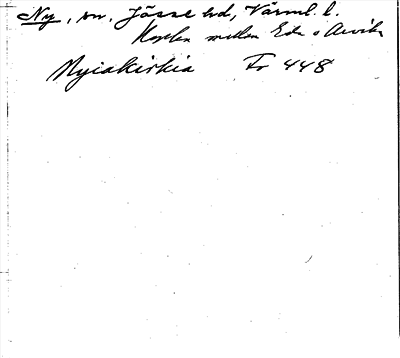 Ny, sn. Jösse hd, Värml. l.
mellan Eda o Arvika
Nyiakirkia Fr 448